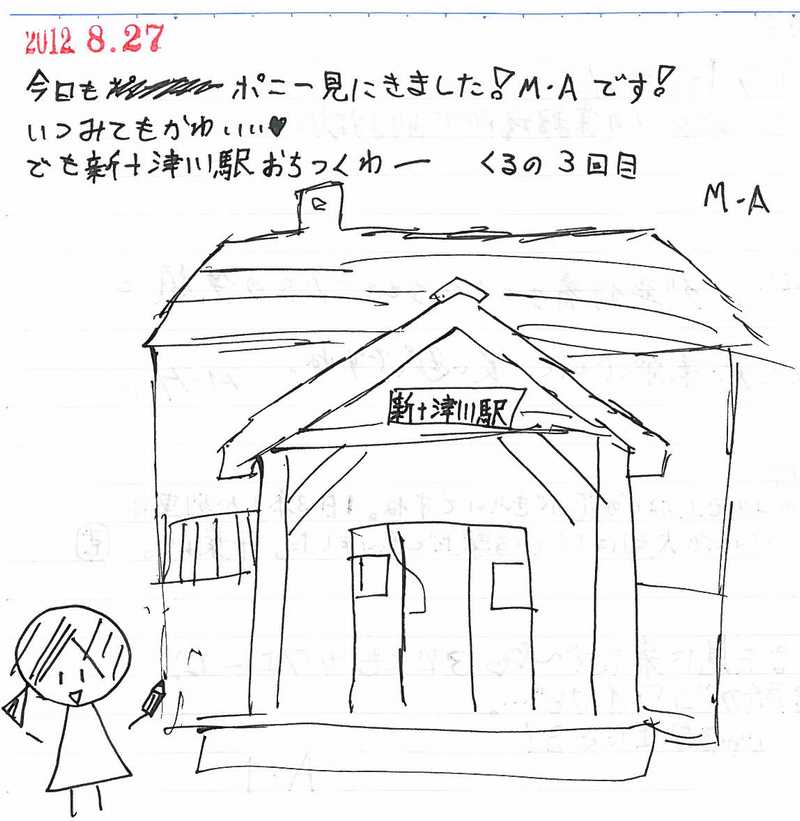 2012 8.27
今日も ポニー見にきました!M・Aです!
いつみてもかわいい♥
でも新十津川駅おちつくわー くるの3回目
M・A
新十津川駅